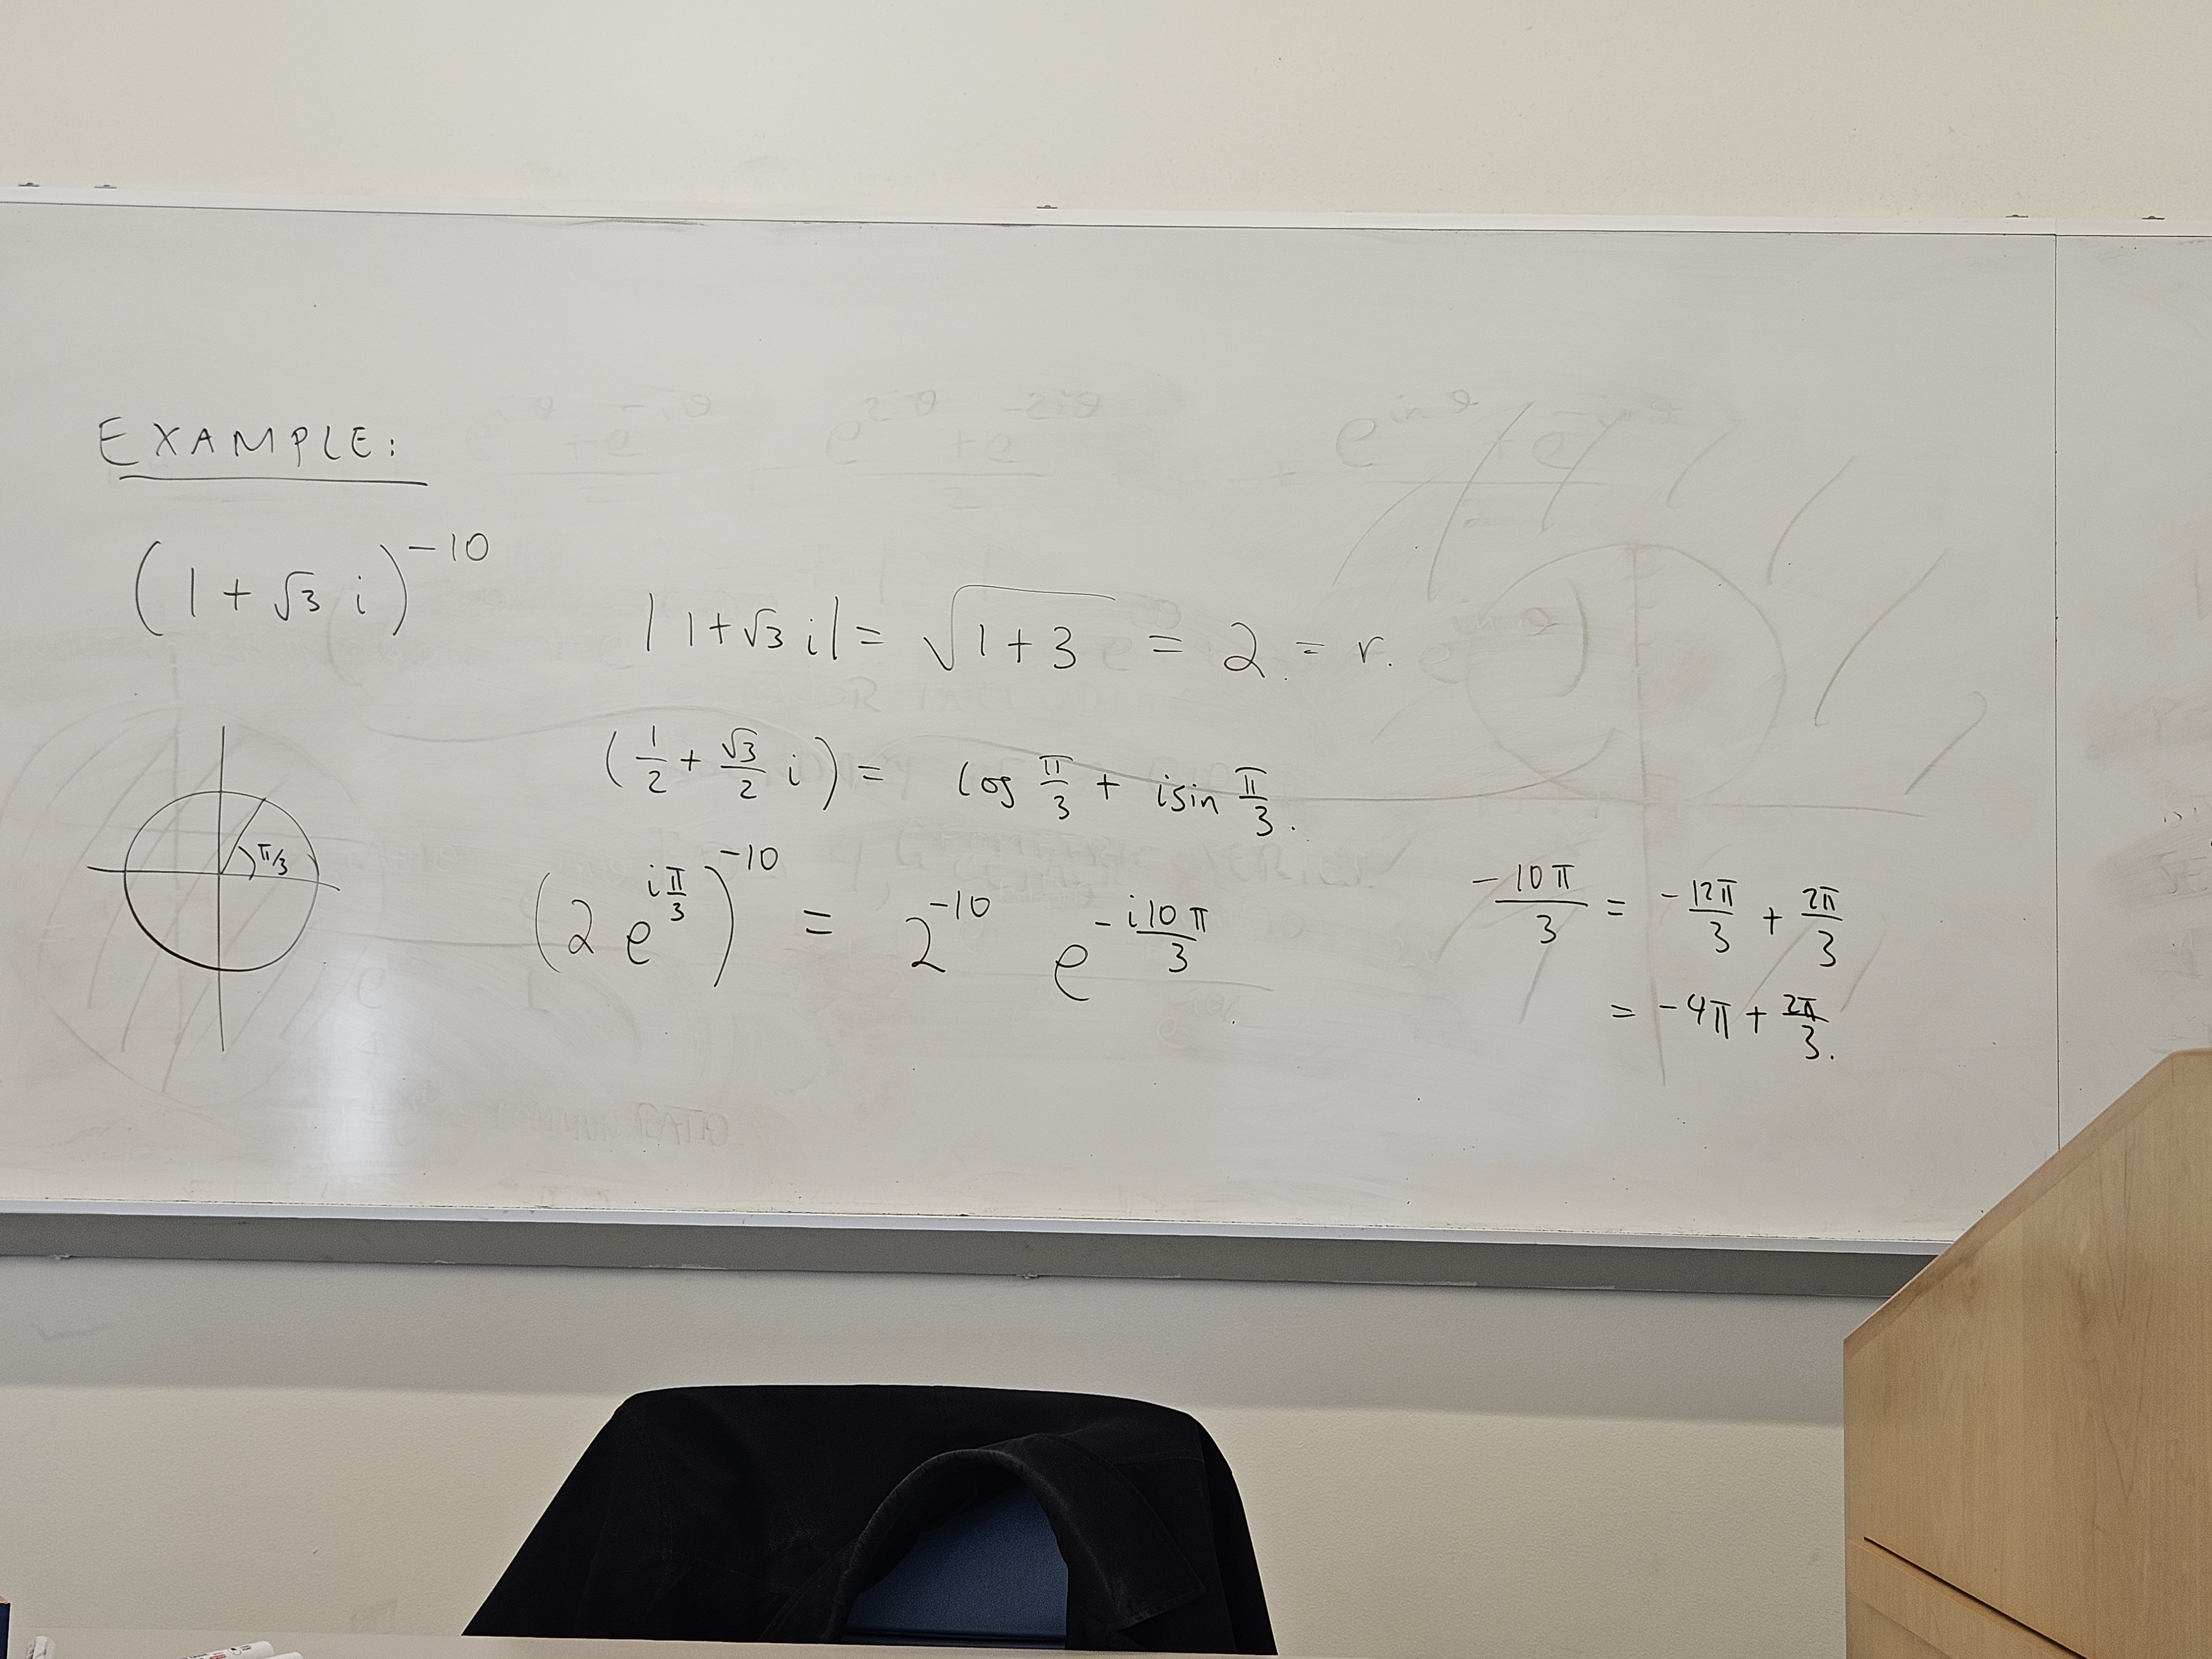 EXAMPLE:
(1 + √3 i)^-10
|1 + √3 i| = √(1 + 3) = 2 = r.
(1/2 + √3/2 i) = cos π/3 + i sin π/3.
π/3
(2 e^(i π/3))^-10 = 2^-10 e^(-i10π/3)
-10π/3 = -12π/3 + 2π/3
= -4π + 2π/3.